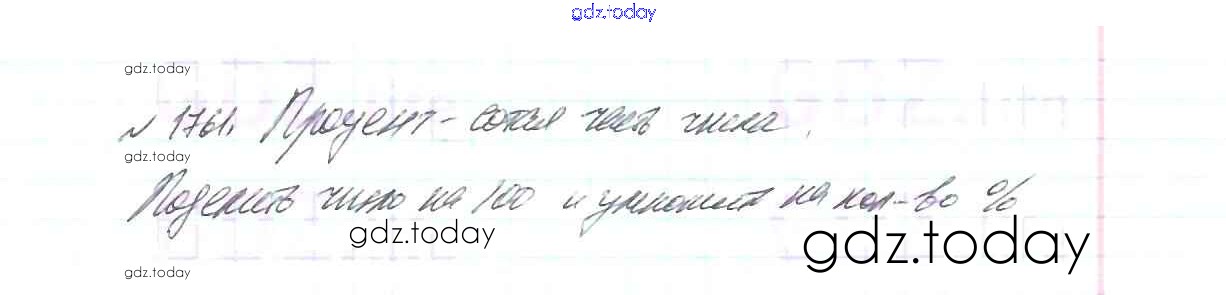 gdz.today
gdz.today
№ 1761. Процент - сотая часть числа.
gdz.today
Поделить число на 100 и умножить на кол-во %
gdz.today
gdz.today
gdz.today